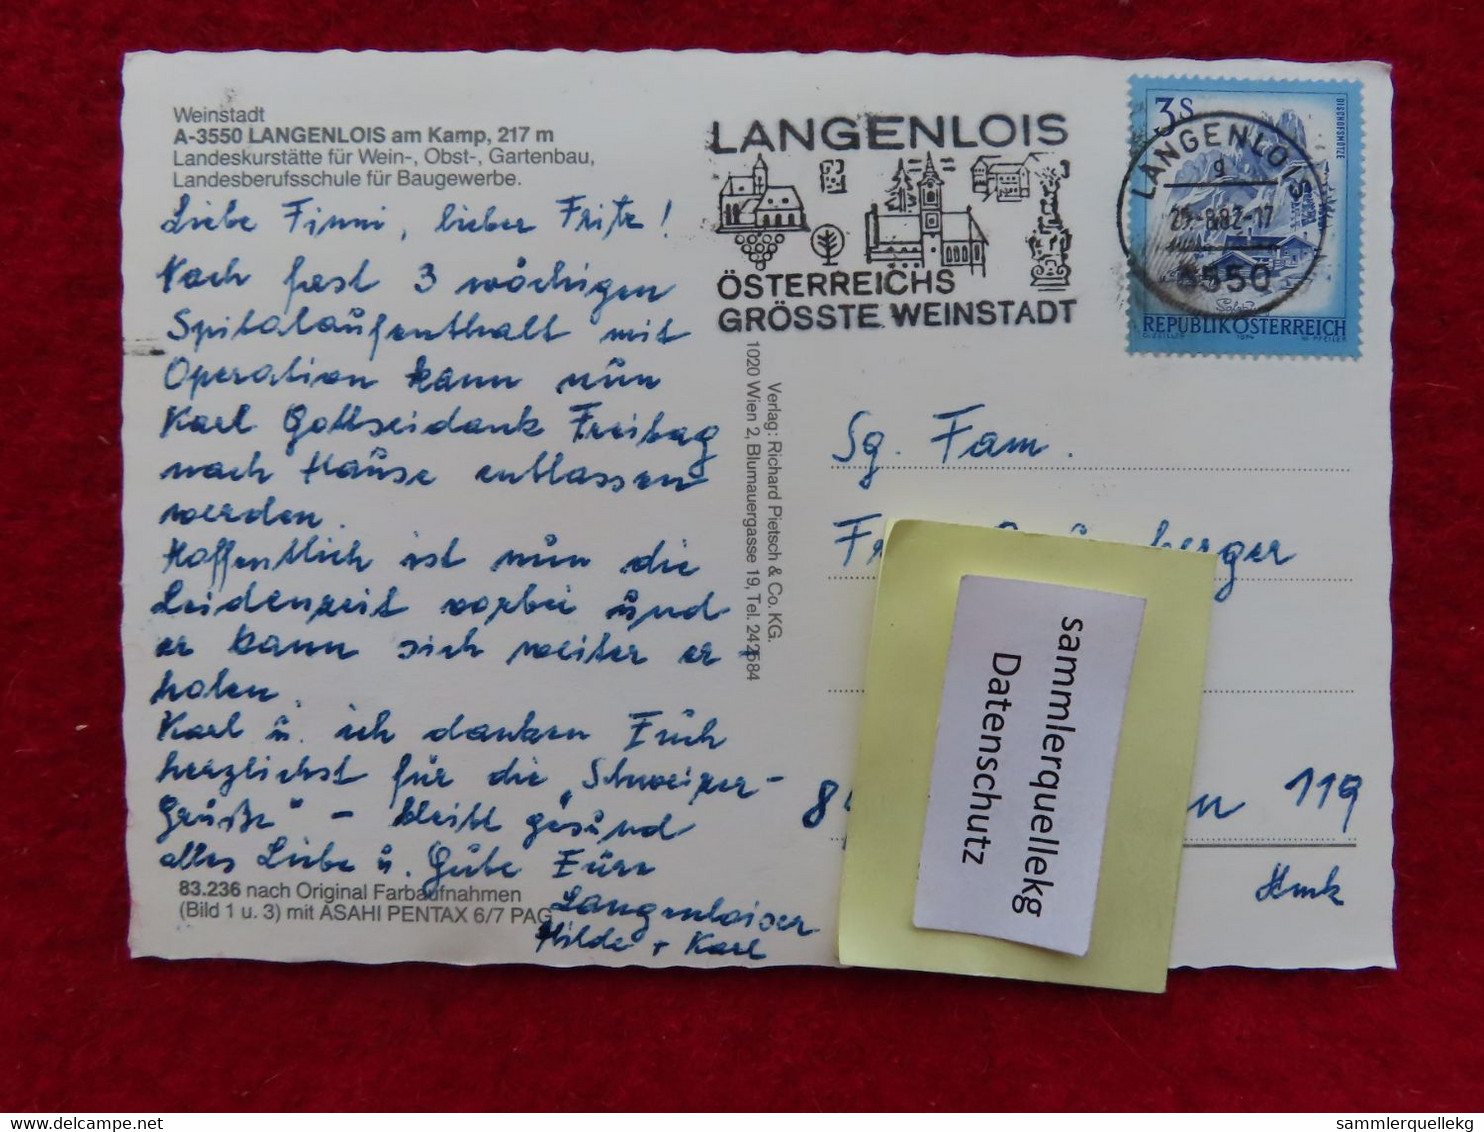 Weinstadt
A-3550 LANGENLOIS am Kamp, 217 m
Landeskurstätte für Wein-, Obst-, Gartenbau,
Landesberufsschule für Baugewerbe.
Liebe Finni, lieber Fritz!
Nach fast 3 wöchigen
Spitalaufenthalt mit
Operation kann nun
Karl Gottseidank Freitag
nach Hause entlassen
werden.
Hoffentlich ist nun die
Leidenzeit vorbei und
er kann sich weiter er-
holen.
Karl u. ich danken Euch
herzlichst für die „Schweizer-
Grüße" - bleibt gesund
alles Liebe u. Gute Eure
Langenloiser
Hilde + Karl
83.236 nach Original Farbaufnahmen
(Bild 1 u. 3) mit ASAHI PENTAX 6/7 PAG
Verlag: Richard Pietsch & Co. KG.
1020 Wien 2, Blumauergasse 19, Tel. 242684
LANGENLOIS
ÖSTERREICHS
GRÖSSTE WEINSTADT
3S
BISCHOFSMÜTZE
LANGENLOIS
g
25.-8.82-17
3550
REPUBLIK ÖSTERREICH
1974
Sg. Fam.
berger
8
119
Stmk
sammlerquellekg
Datenschutz
www.delcampe.net
sammlerquellekg